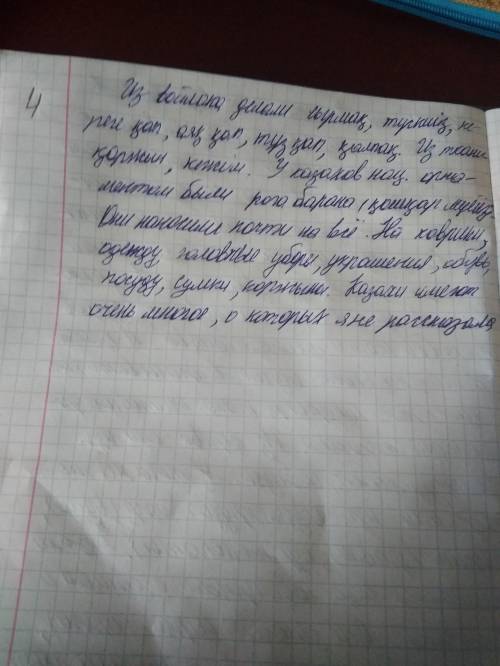 4
Из войлока делали сырмақ, тускииз, ке-
реге қап, аяқ қап, тұз қап, қалпақ. Из ткани
қоржин, кежім. У казахов нац. орна-
ментом были рога барана (қошқар мүйіз
Они наносили почти на всё. На коврики,
одежду головные уборы, украшения, обувь,
посуду, сумки, коржыны. Казахи имеют
очень многое, о которых я не рассказала